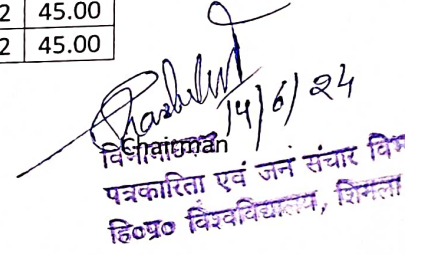 2 45.00
2 45.00
14/6/24
Chairman
पत्रकारिता एवं जन संचार
हि०प्र० विश्वविद्यालय, शिमला